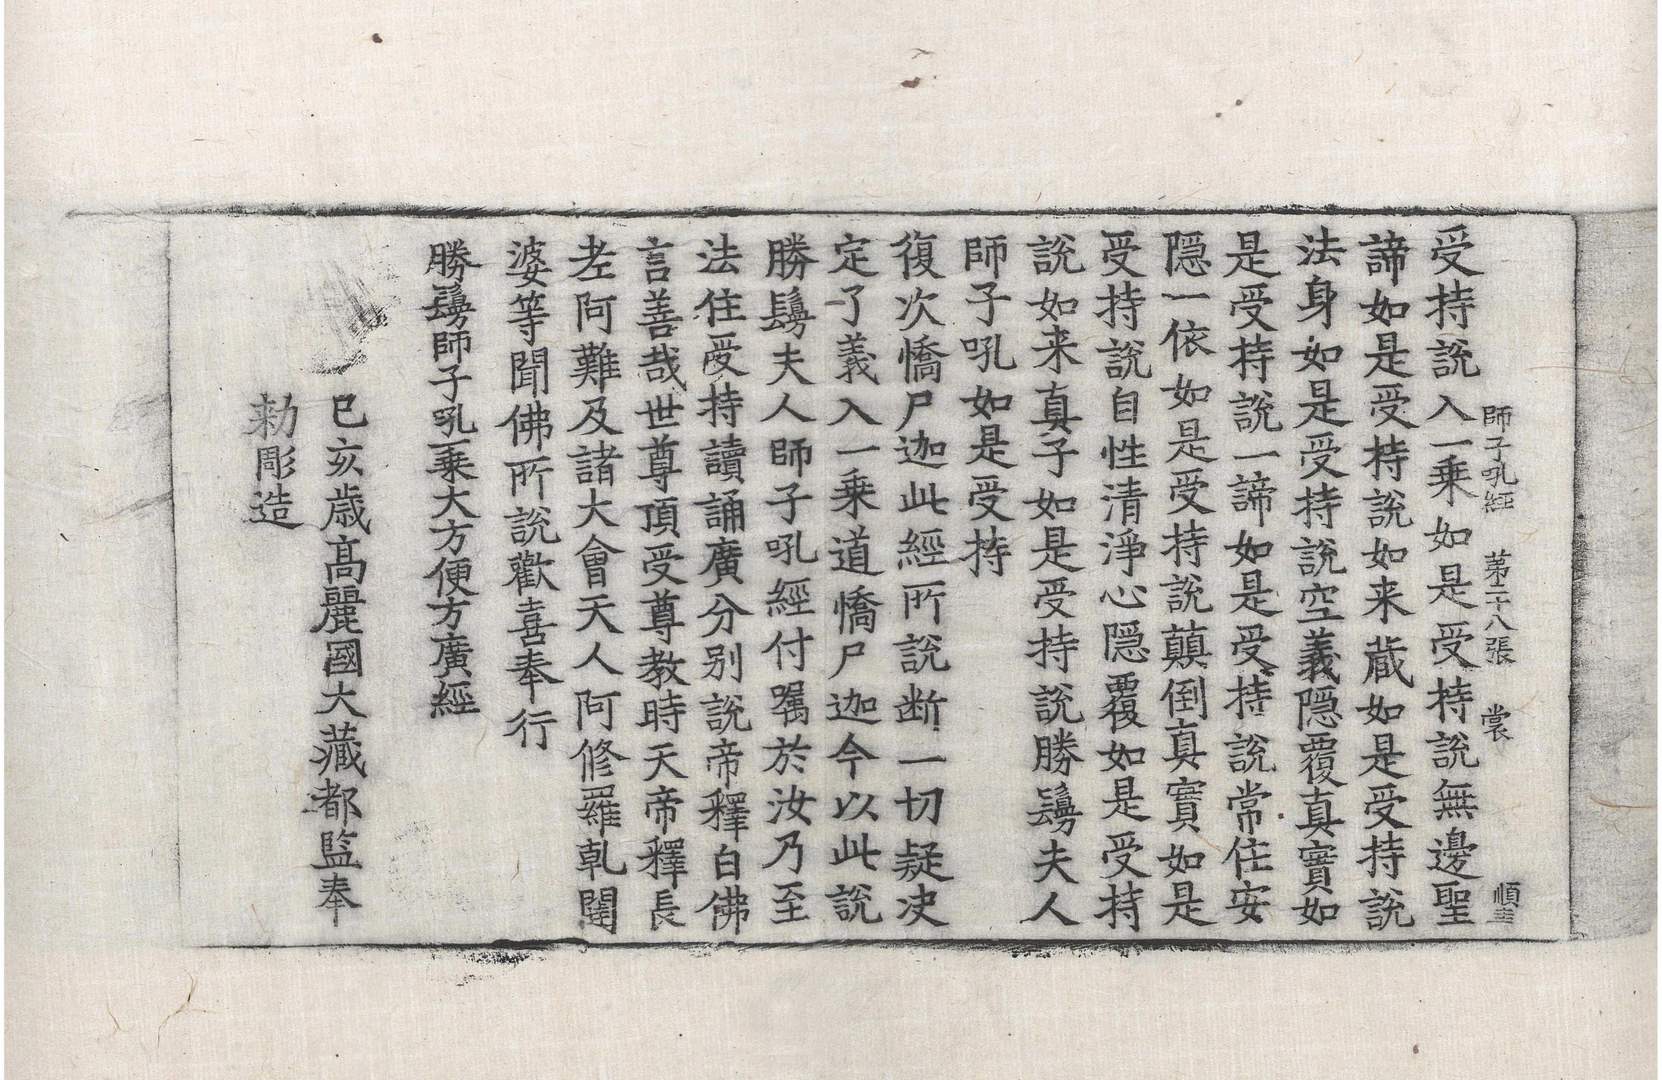 師子吼經 第二十八張 裳 順圭
受持說入一乘如是受持說無邊聖
諦如是受持說如来蔵如是受持說
法身如是受持說空義隠覆真實如
是受持說一諦如是受持說常住安
隠一依如是受持說顛倒真實如是
受持說自性清淨心隠覆如是受持
說如来真子如是受持說勝鬘夫人
師子吼如是受持
復次憍尸迦此經所說断一切疑决
定了義入一乘道憍尸迦今以此說
勝鬘夫人師子吼經付嘱於汝乃至
法住受持讀誦廣分别說帝釋白佛
言善哉世尊頂受尊教時天帝釋長
老阿難及諸大會天人阿修羅乹闥
婆等聞佛所說歡喜奉行
勝鬘師子吼一乘大方便方廣經
已亥歳髙麗國大藏都監奉
勑彫造